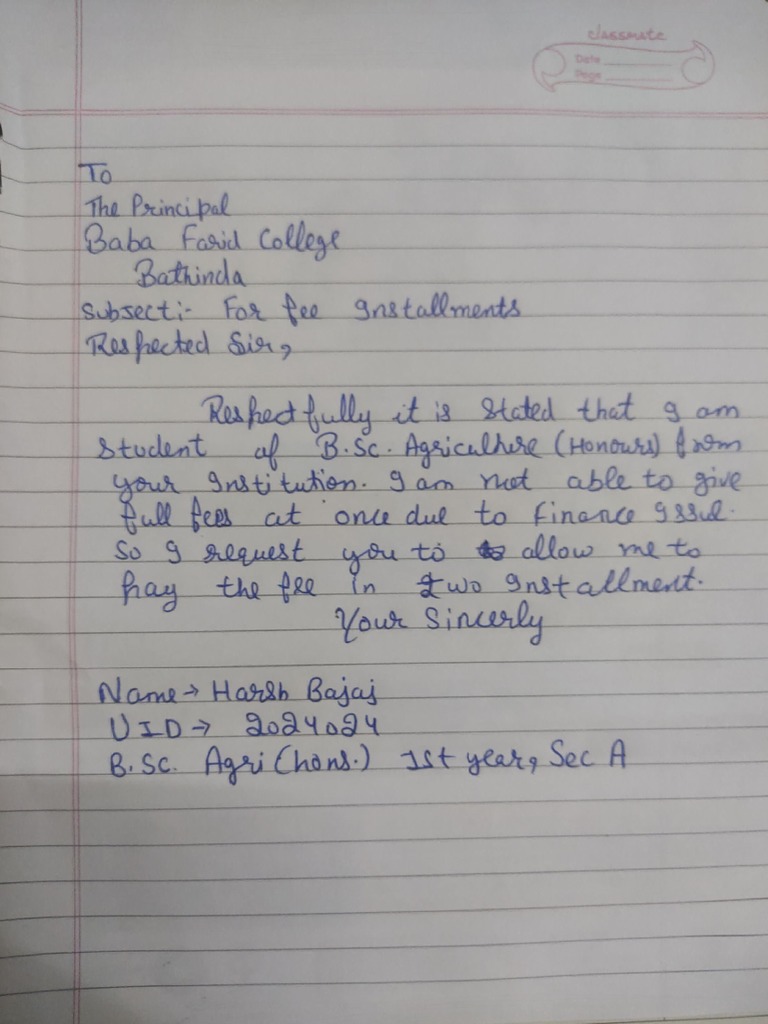 classmate
Date
Page
To
The Principal
Baba Farid College
Bathinda
Subject:- For fee Installments
Respected Sir,
Respectfully it is Stated that I am
Student of B.Sc. Agriculture (Honours) from
your Institution. I am not able to give
full fees at once due to finance Issue.
So I request you to allow me to
pay the fee in two Installment.
Your Sincerly
Name → Harsh Bajaj
UID → 2024024
B.Sc. Agri (hons.) 1st year, Sec A